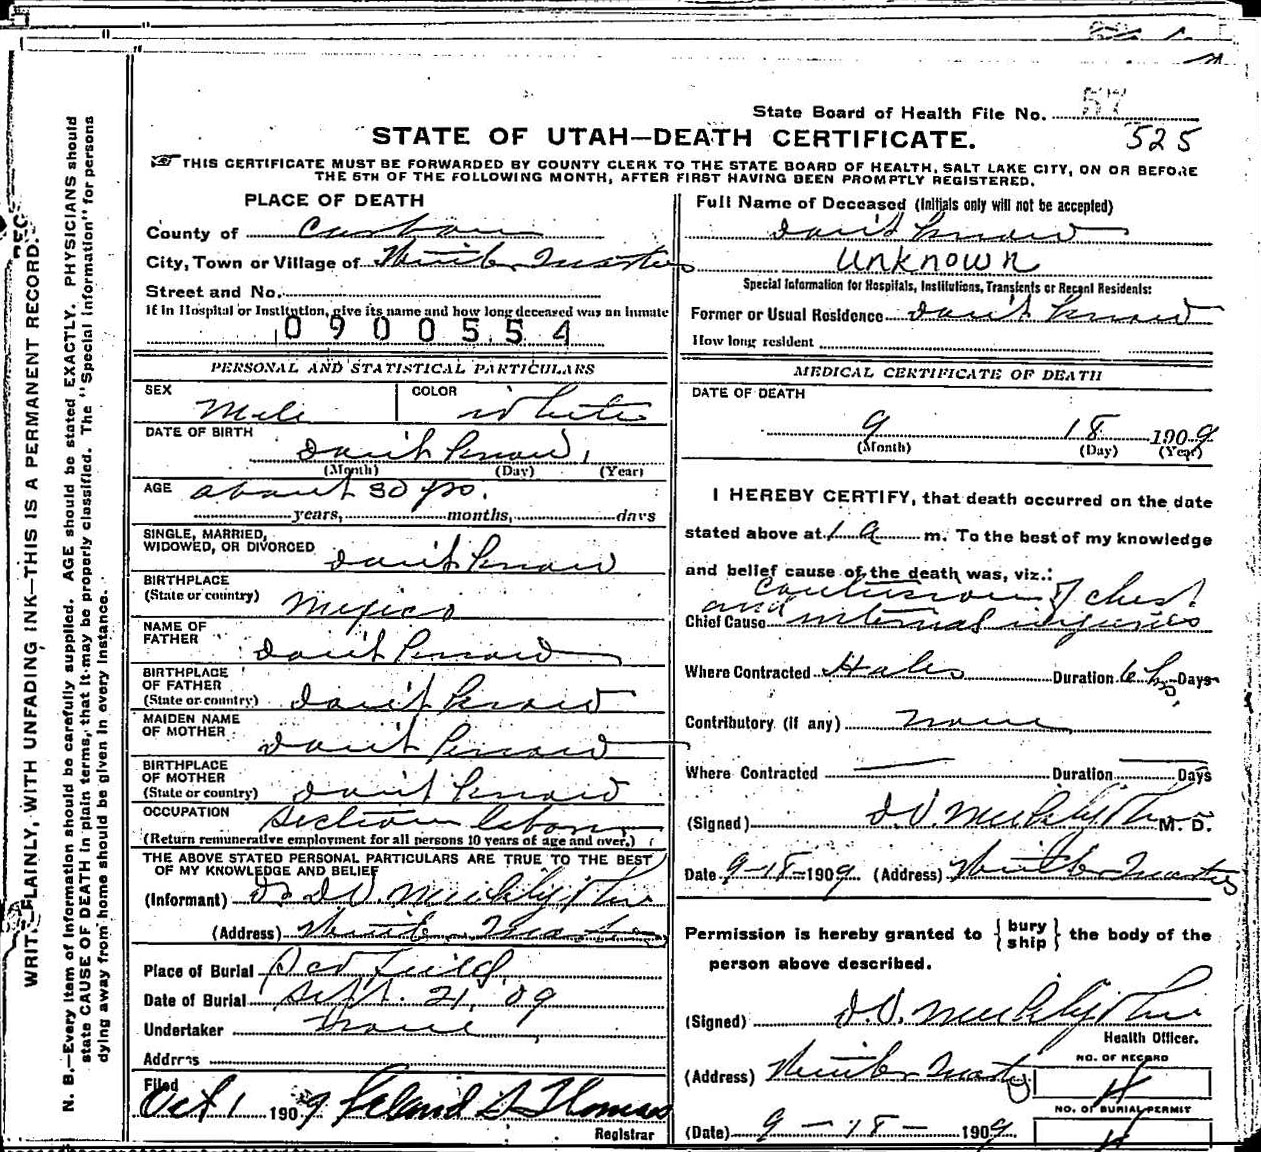 State Board of Health File No. 57
525
STATE OF UTAH—DEATH CERTIFICATE.
THIS CERTIFICATE MUST BE FORWARDED BY COUNTY CLERK TO THE STATE BOARD OF HEALTH, SALT LAKE CITY, ON OR BEFORE
THE 5TH OF THE FOLLOWING MONTH, AFTER FIRST HAVING BEEN PROMPTLY REGISTERED.
WRITE PLAINLY, WITH UNFADING INK—THIS IS A PERMANENT RECORD.
N. B.—Every item of information should be carefully supplied. AGE should be stated EXACTLY. PHYSICIANS should
state CAUSE OF DEATH in plain terms, that it may be properly classified. The "Special Information" for persons
dying away from home should be given in every instance.
PLACE OF DEATH
County of Carbon
City, Town or Village of Winter Quarters
Street and No.
If in Hospital or Institution, give its name and how long deceased was an inmate
0900554
PERSONAL AND STATISTICAL PARTICULARS
SEX Male COLOR White
DATE OF BIRTH
Don't Know
(Month) (Day) (Year)
AGE about 30 yrs.
years, months, days
SINGLE, MARRIED,
WIDOWED, OR DIVORCED Don't Know
BIRTHPLACE
(State or country) Mexico
NAME OF
FATHER Don't Know
BIRTHPLACE
OF FATHER
(State or country) Don't Know
MAIDEN NAME
OF MOTHER Don't Know
BIRTHPLACE
OF MOTHER
(State or country) Don't Know
OCCUPATION Section labor
(Return remunerative employment for all persons 10 years of age and over.)
THE ABOVE STATED PERSONAL PARTICULARS ARE TRUE TO THE BEST
OF MY KNOWLEDGE AND BELIEF
(Informant) Dr D.V.
(Address) Winter Quarters
Place of Burial Scofield
Date of Burial Sept. 21, 09
Undertaker None
Address
Filed
Oct 1 1909 Leland S Thomas
Registrar
Full Name of Deceased (Initials only will not be accepted)
Don't Know
Unknown
Special Information for Hospitals, Institutions, Transients or Recent Residents:
Former or Usual Residence Don't Know
How long resident
MEDICAL CERTIFICATE OF DEATH
DATE OF DEATH
9 18 1909
(Month) (Day) (Year)
I HEREBY CERTIFY, that death occurred on the date
stated above at 1 a m. To the best of my knowledge
and belief cause of the death was, viz.:
Contusion of chest
Chief Cause and internal injuries
Where Contracted Hales Duration 6 hrs Days
Contributory (if any) none
Where Contracted Duration Days
(Signed) D.V. M. D.
Date 9-18-1909 (Address) Winter Quarters
Permission is hereby granted to { bury ship } the body of the
person above described.
(Signed) D.V.
Health Officer.
(Address) Winter Quarters
NO. OF RECORD
4
NO. OF BURIAL PERMIT
4
(Date) 9 - 18 - 1909